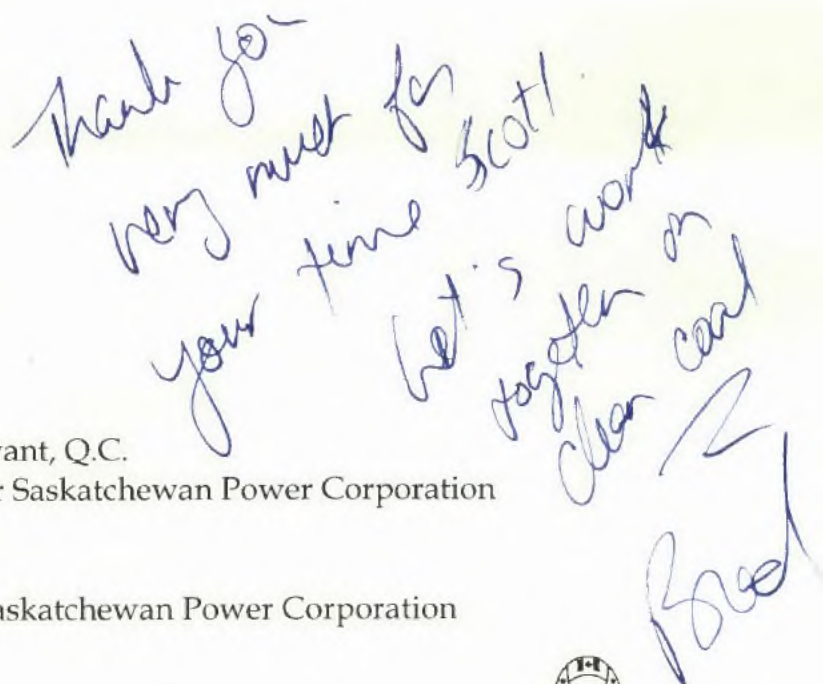 Thank you
very much for
your time Scott.
Let's work
together on
clean coal
Brad
vant, Q.C.
r Saskatchewan Power Corporation
askatchewan Power Corporation